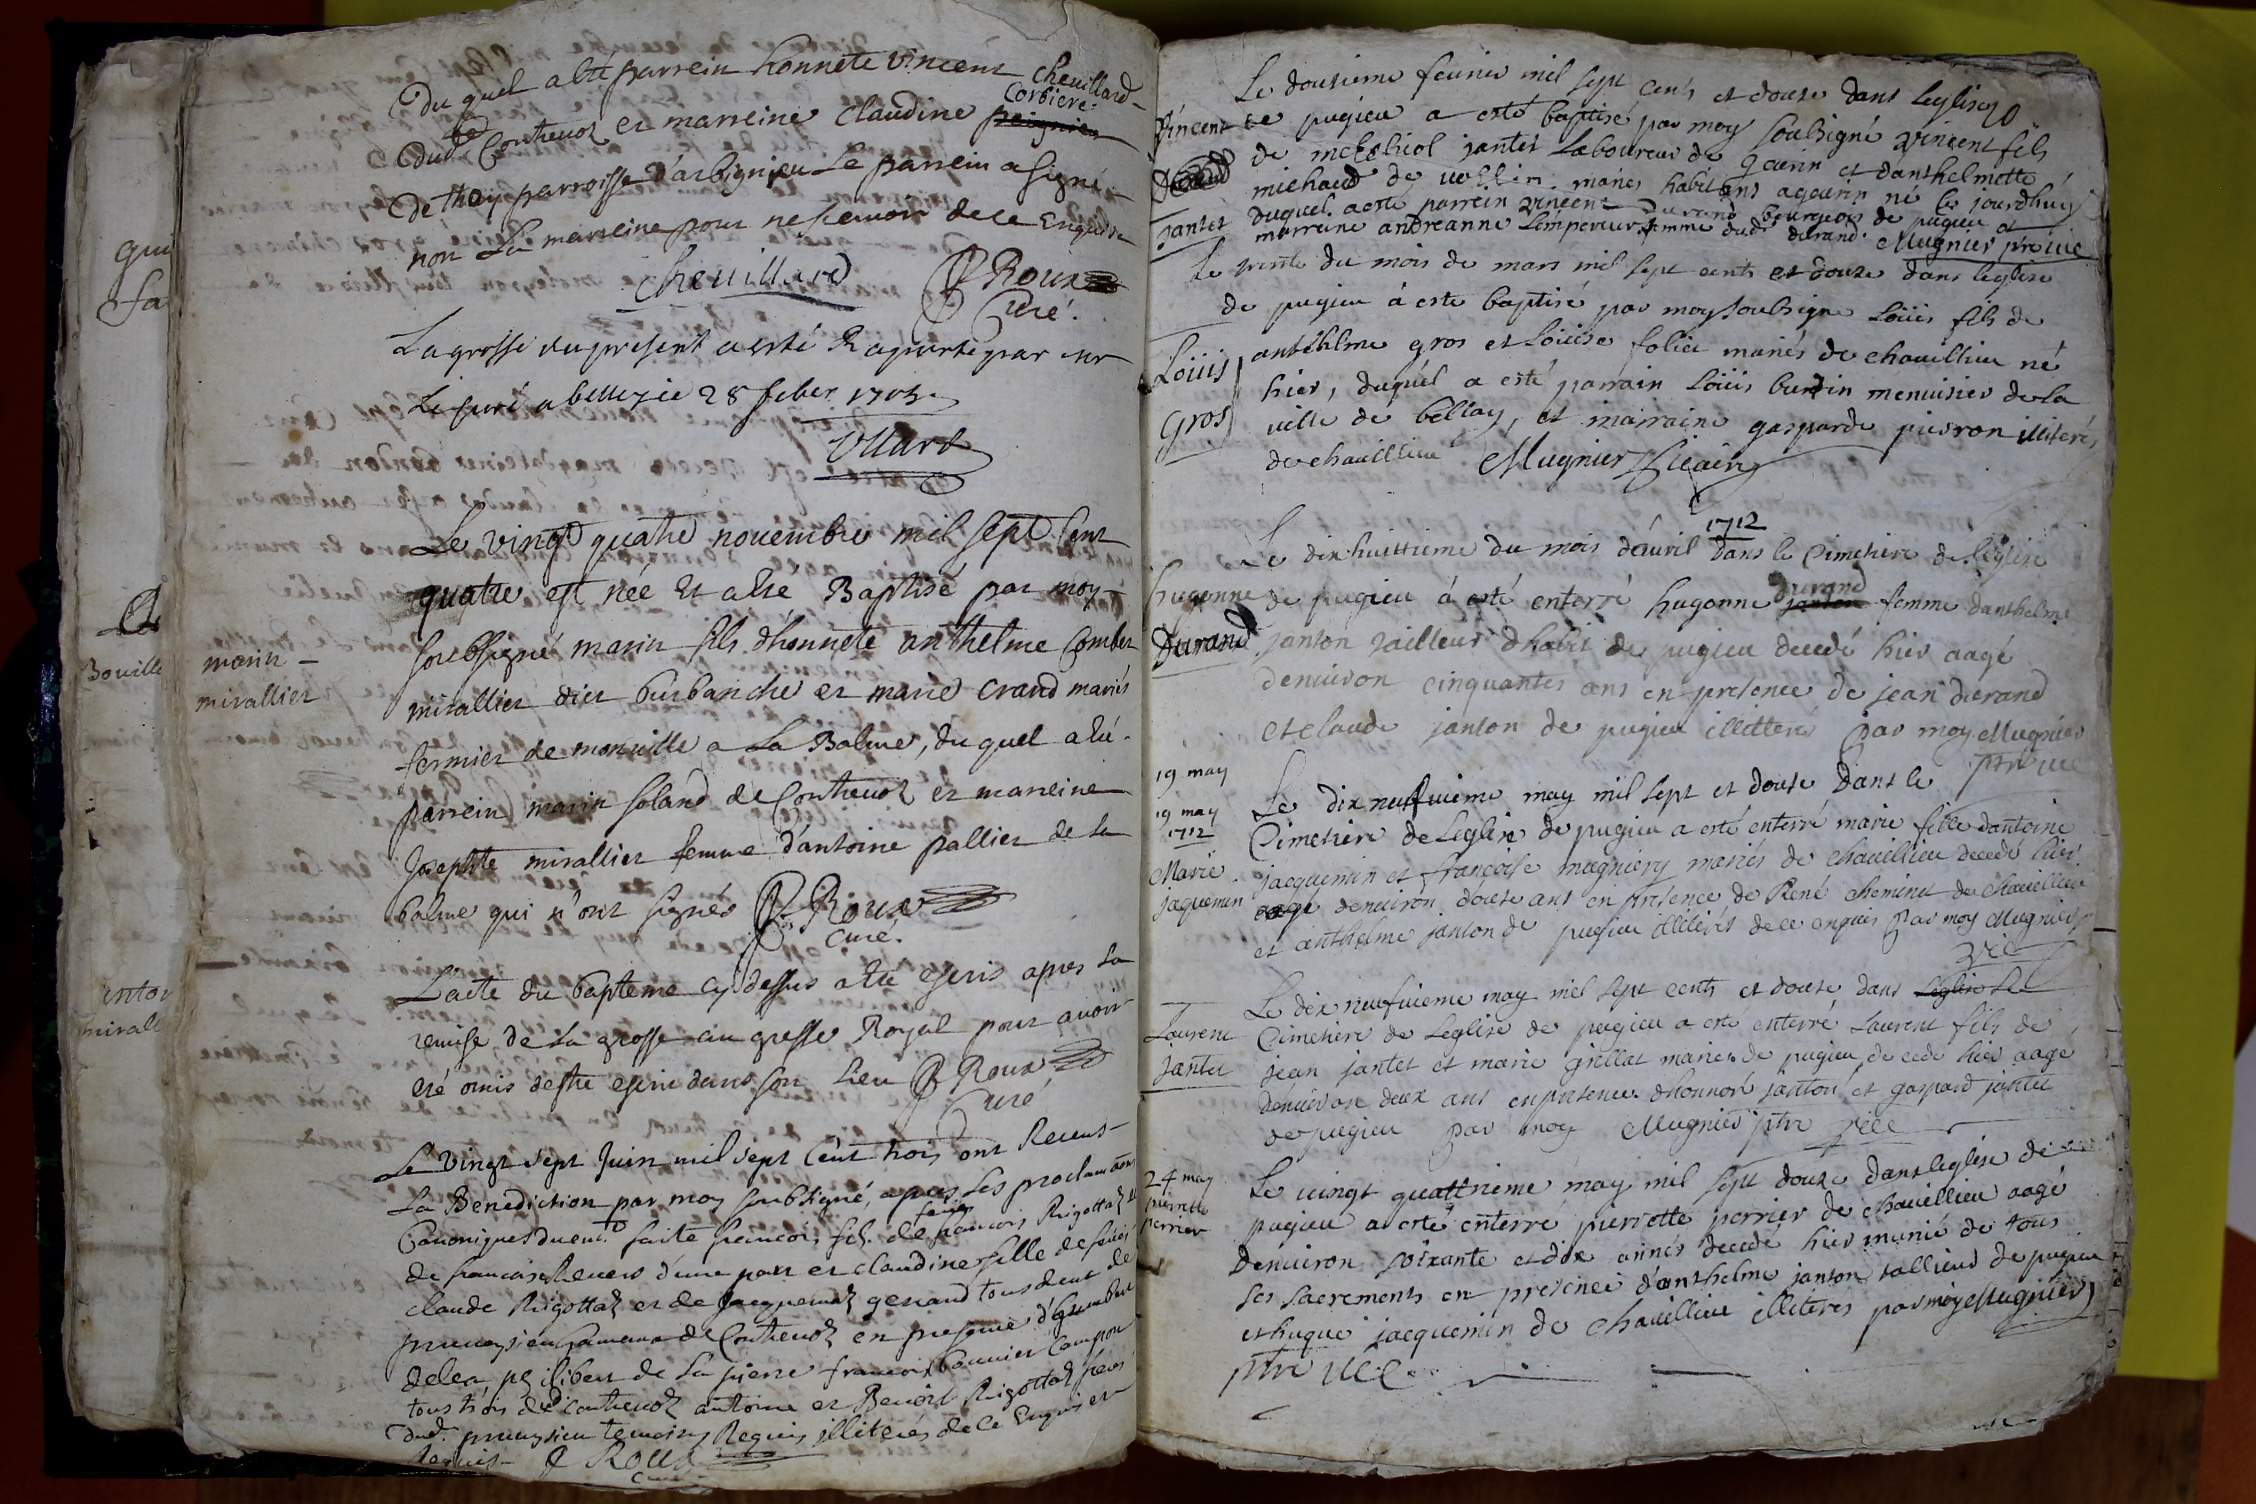 Du quel a été parrein honnete Vincent Cheuillard
dud. Contreuoz et marreine Claudine Corbiere
De thoy parroisse d'arbignieu Le parrein a signé
non La marreine pour ne sçauoir de ce Enquise
Cheuillard Roux
Curé.
La grosse du present a esté Raporté par
Le curé a belley ce 28
Le vingt quatre nouembre mil sept Cent
quatre est née et a été Baptisé par moy
soubsigné marin fils d'honnete anthelme Combet
marin
mirallier
mirallier dict burbanche et marie Crand mariés
fermier de monuille a La Balme, du quel a été
parrein marin soland de Contreuoz et marreine
Josephte mirallier femme d'antoine pallier de la
balme qui n'ont signés Roux
Curé.
L'acte du bapteme cy dessus a été escris apres la
remise de la grosse au greffe Royal pour auoir
été omis destre escrit dans son Lieu Roux
Curé
Le Vingt sept Juin mil sept Cent trois ont Receus
La Benediction par moy soubsigné, apres les proclamaons
Canoniques duemt. faite francois fils de feu francois Rigottaz et
de francoise Reuers d'une part et claudine fille de feus
claude Rigottaz et de Jacquemaz genand tous deux de
en presence d'
de la pierre francois bonnier
tous trois de Contreuoz antoine et Benoist Rigottaz freres
dud. temoins Requis illiterés de ce Enquis et
Requis Roux
Curé
Le dousieme feurier mil sept cents et douse dans leglise
Vincent
de pugieu a esté baptisé par moy soubsigné vincent fils
de melchiol jantet Laboureur de et danthelmette
Jantet
michaud de uollin mariés habitans né ce jourdhuy
duquel a esté parrein vincent durand bourgeois de pugieu et
marraine andreanne Lempereur femme dudt durand. Mugnier ptre vic
Le trente du mois de mars mil sept cents et douze dans leglise
de pugieu à esté baptisé par moy soubsigne Loüis fils de
Loüis
Gros
anthelme gros et Loüise foliet mariés de chauillieu né
hier, duquel a esté parrain Loüis burdin menuisier de la
uille de bellay, et marraine gasparde pierron illiterés
de chauillieu Mugnier Vicair
1712
Le dix huittieme du mois d'auril dans le Cimetiere de leglise
hugonne
Durand
de pugieu à esté enterré hugonne durand janton femme danthelme
janton tailleur dhabit de pugieu decedé hier aagé
denuiron cinquantes ans en presence de jean durand
et claude janton de pugieu illitterés par moy Mugnier
ptre uic
19 may
19 may
1712
Marie
Jaquemin
Le dix neufuieme may mil sept et douse dans le
Cimetiere de Leglise de pugieu a esté enterré marie fille dantoine
jacquemin et françoise magniery mariés de chauillieu decedé hier
aagé denuiron douse ans en presence de René cheminet de chauillieu
et anthelme janton de pugieu illiterés de ce enquis par moy Mugnier p
vic
Laurent
Jantet
Le dix neufuieme may mil sept cents et douse dans Leglise Le
Cimetiere de Leglise de pugieu a esté enterré Laurent fils de
jean jantet et marie grillat mariés de pugieu decede hier aagé
denuiron deux ans en presence dhonnoré janton et gaspard jantet
de pugieu par moy Mugnier ptre vic
24 may
pierrette
perrier
Le uingt quattrieme may mil sept douze dans leglise de
pugieu a esté enterré pierrette perrier de chauillieu aagé
denuiron soixante et dix annés decedé hier munié de tous
ses sacrements en presence d'anthelme janton tallieur de pugieu
et hugue jacquemin de chauillieu illiterés par moy Mugnier
ptre uic